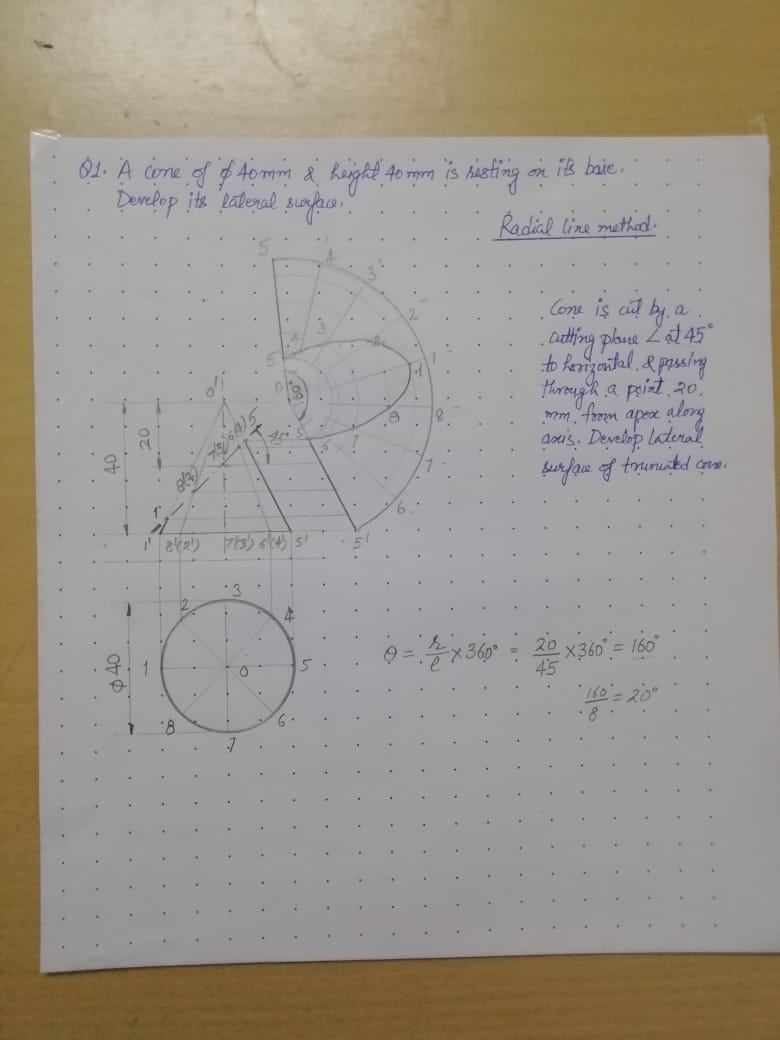 Q1. A cone of φ 40mm & height 40mm is resting on its base.
Develop its lateral surface.
Radial line method.
Cone is cut by a
cutting plane ∠ at 45°
to horizontal & passing
through a point 20
mm from apex along
axis. Develop lateral
surface of truncated cone.
5 4' 3' 2' 1'
5 4 3 2 1
O 8 8
5 6 7 7
6
5'
O'
20
40
45°
1'
8'(2')
7'(3')
6'(4')
5
1' 8'(2') 7'(3') 6'(4') 5'
φ40
2 3 4
1 O 5
8 7 6
θ = r/l × 360° = 20/45 × 360° = 160°
160/8 = 20°